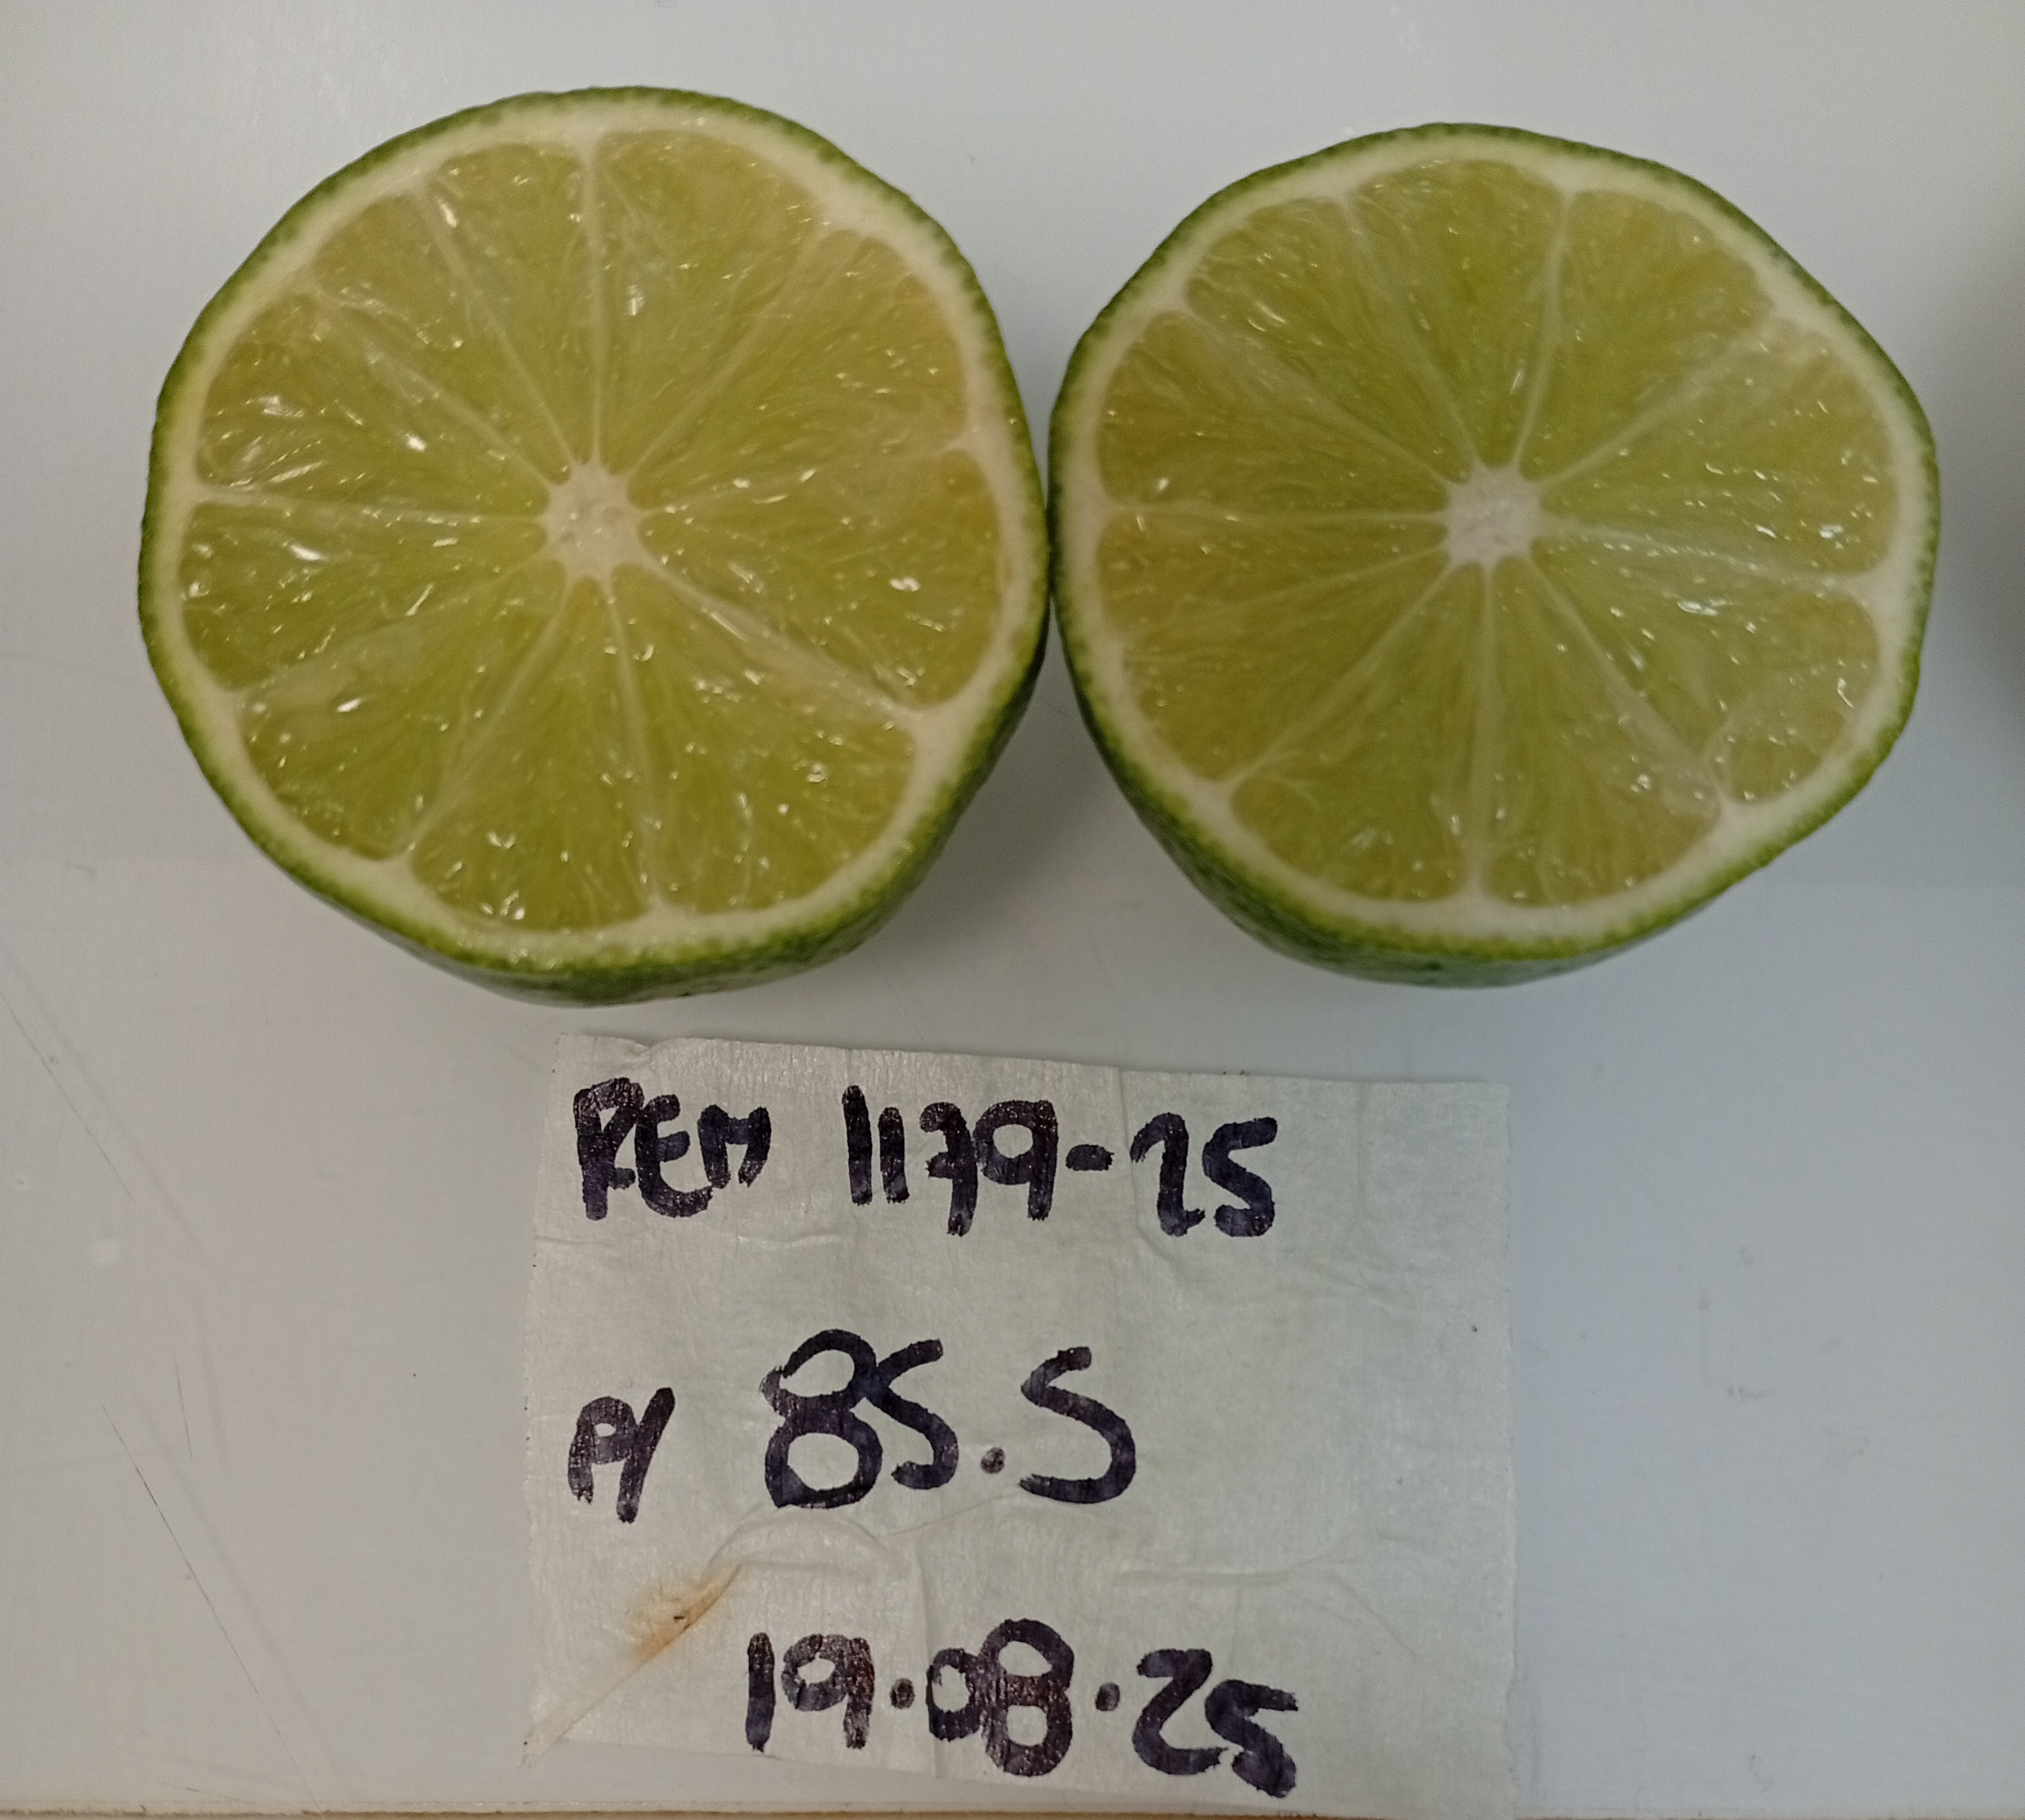 REM 1179-25
P/ 85.5
19.08.25